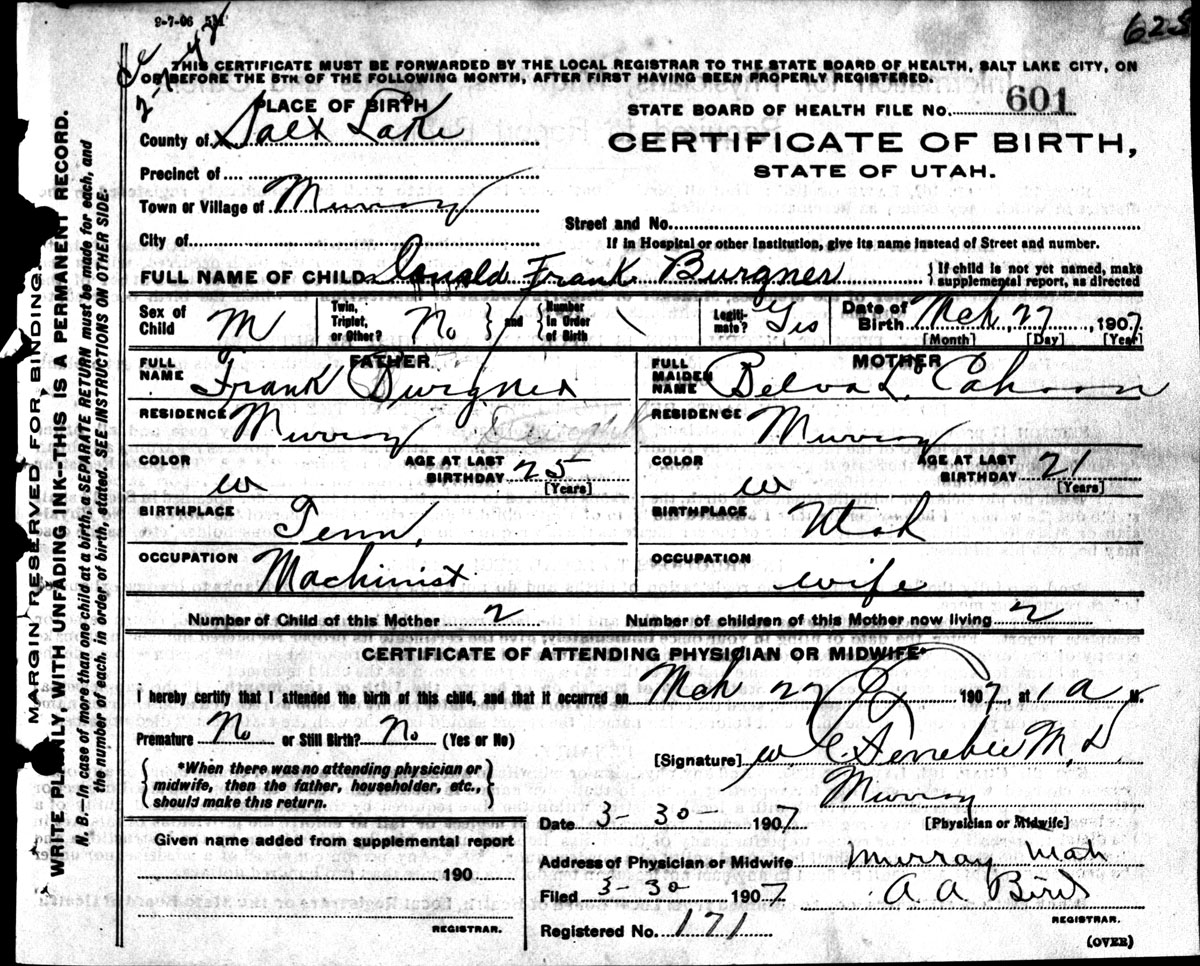 9-7-06
628
THIS CERTIFICATE MUST BE FORWARDED BY THE LOCAL REGISTRAR TO THE STATE BOARD OF HEALTH, SALT LAKE CITY, ON
OR BEFORE THE 5TH OF THE FOLLOWING MONTH, AFTER FIRST HAVING BEEN PROPERLY REGISTERED.
PLACE OF BIRTH
STATE BOARD OF HEALTH FILE No. 601
County of Salt Lake
CERTIFICATE OF BIRTH,
STATE OF UTAH.
Precinct of
Town or Village of Murray
Street and No.
City of
If in Hospital or other Institution, give its name instead of Street and number.
FULL NAME OF CHILD Donald Frank Burgner { If child is not yet named, make supplemental report, as directed
Sex of Child M Twin, Triplet, or Other? No } and { Number in Order of Birth Legiti-mate? Yes Date of Birth Mch 27, 1907
[Month] [Day] [Year]
FATHER MOTHER
FULL NAME Frank Burgner FULL MAIDEN NAME Belva L. Cahoon
RESIDENCE Murray RESIDENCE Murray
COLOR w AGE AT LAST BIRTHDAY 25 [Years] COLOR w AGE AT LAST BIRTHDAY 21 [Years]
BIRTHPLACE Tenn. BIRTHPLACE Utah
OCCUPATION Machinist OCCUPATION wife
Number of Child of this Mother 2 Number of children of this Mother now living 2
CERTIFICATE OF ATTENDING PHYSICIAN OR MIDWIFE*
I hereby certify that I attended the birth of this child, and that it occurred on Mch 27 1907, at 1 a M.
Premature No or Still Birth? No (Yes or No)
[Signature] M.D.
{ *When there was no attending physician or
midwife, then the father, householder, etc.,
should make this return. }
Murray
Date 3-30- 1907 [Physician or Midwife]
Given name added from supplemental report
190
Address of Physician or Midwife Murray Utah
Filed 3-30- 1907 A A Bird
REGISTRAR. REGISTRAR.
Registered No. 171
(OVER)
MARGIN RESERVED FOR BINDING.
WRITE PLAINLY, WITH UNFADING INK--THIS IS A PERMANENT RECORD.
N. B.--In case of more than one child at a birth, a SEPARATE RETURN must be made for each, and
the number of each, in order of birth, stated. SEE INSTRUCTIONS ON OTHER SIDE.